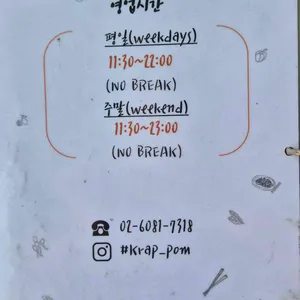 영업시간
평일(weekdays)
11:30~22:00
(NO BREAK)
주말(weekend)
11:30~23:00
(NO BREAK)
02-6081-7318
#krap_pom